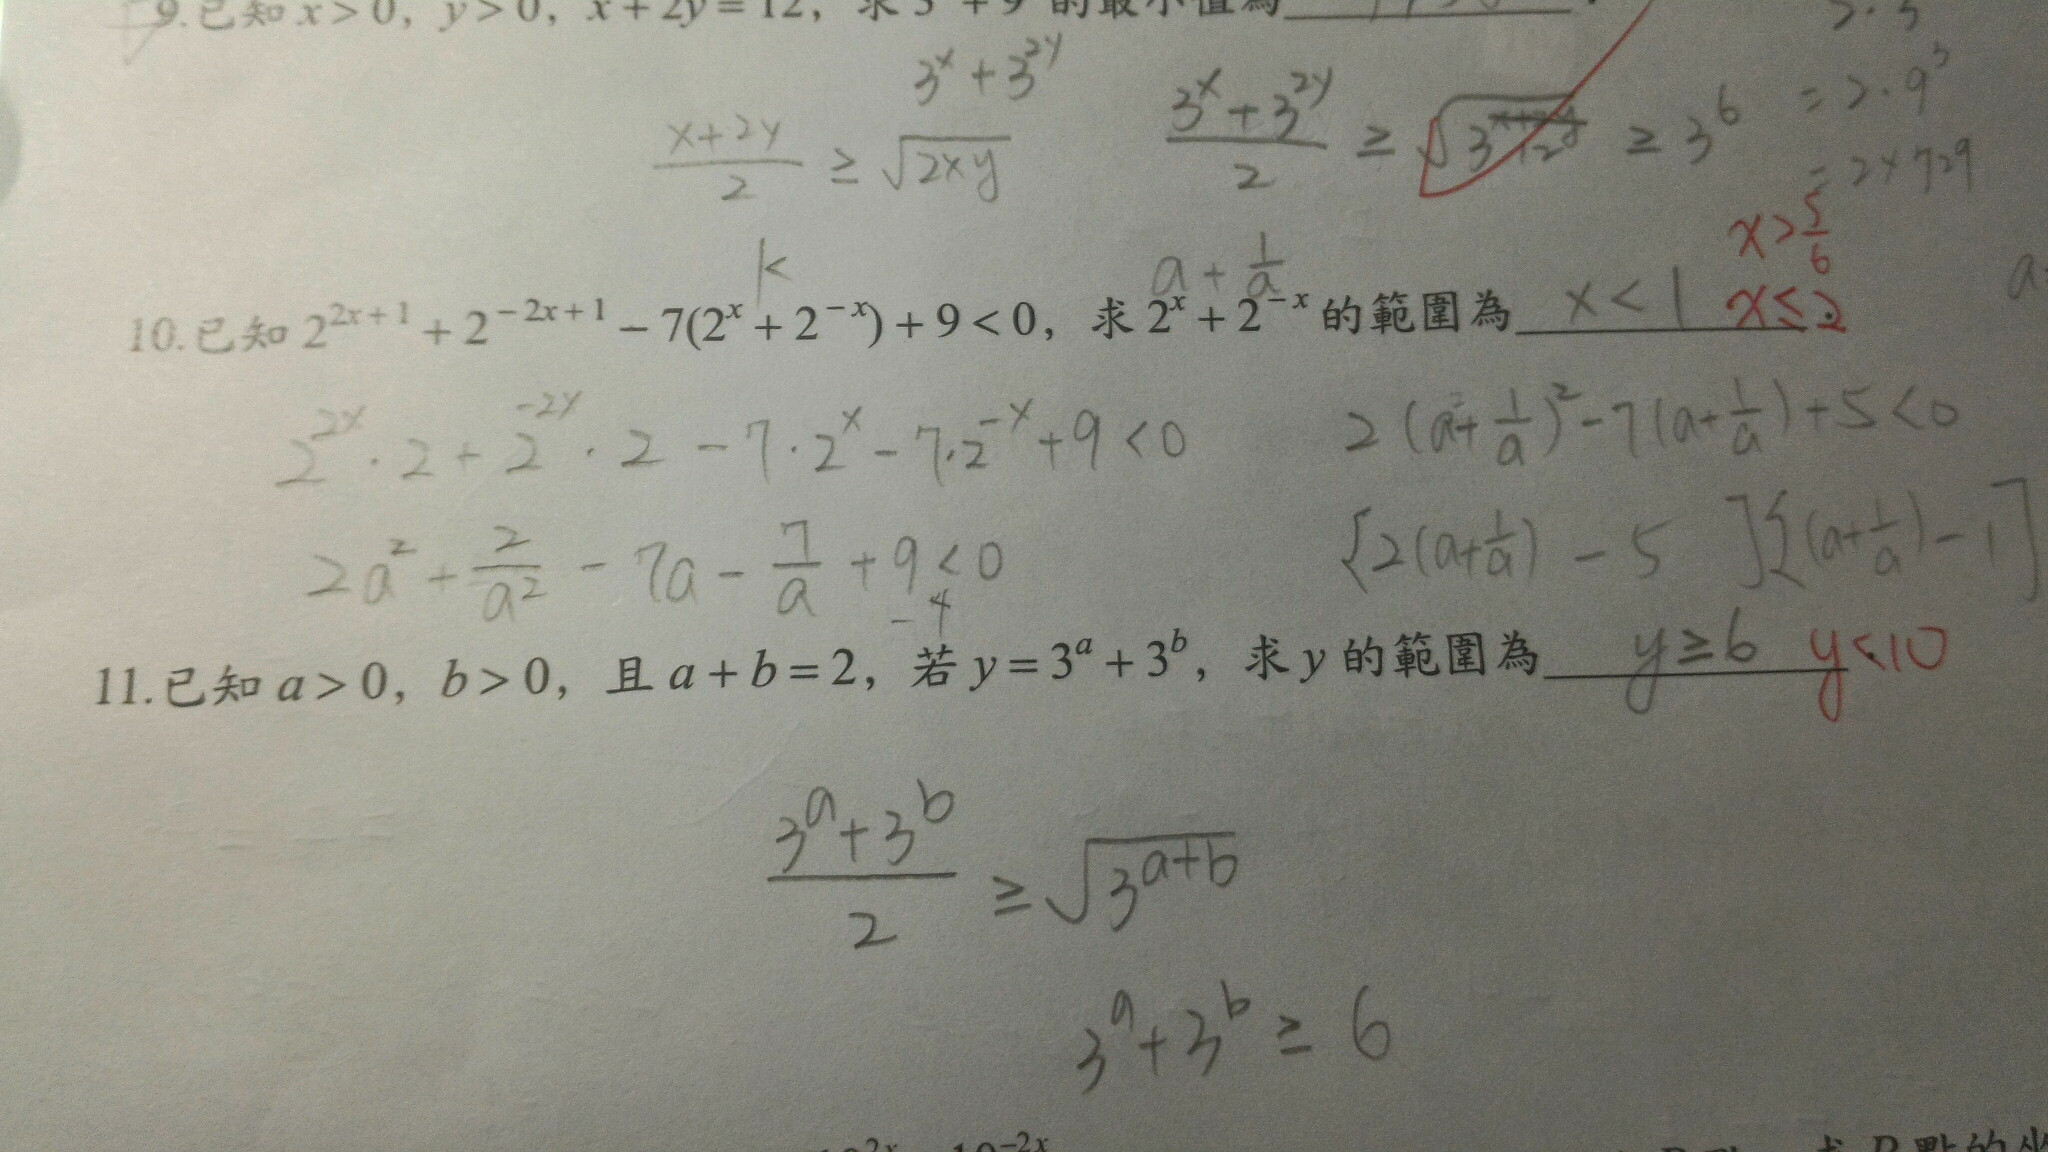 9.已知 x > 0, y > 0, x + 2y = 12, 求 3 + 9 的最小值為
3^x + 3^{2y}
\frac{x+2y}{2} ≥ \sqrt{2xy}
\frac{3^x + 3^{2y}}{2} ≥ \sqrt{3^{12}} ≥ 3^6
= 2·9^3
= 2×729
k
a + \frac{1}{a}
x > \frac{5}{6}
10.已知 2^{2x+1} + 2^{-2x+1} - 7(2^x + 2^{-x}) + 9 < 0, 求 2^x + 2^{-x} 的範圍為 x < 1 x ≤ 2
2^{2x}·2 + 2^{-2x}·2 - 7·2^x - 7·2^{-x} + 9 < 0
2(a + \frac{1}{a})^2 - 7(a + \frac{1}{a}) + 5 < 0
2a^2 + \frac{2}{a^2} - 7a - \frac{7}{a} + 9 < 0
[2(a + \frac{1}{a}) - 5][(a + \frac{1}{a}) - 1]
-4
11.已知 a > 0, b > 0, 且 a + b = 2, 若 y = 3^a + 3^b, 求 y 的範圍為 y ≥ 6 y < 10
\frac{3^a + 3^b}{2} ≥ \sqrt{3^{a+b}}
3^a + 3^b ≥ 6